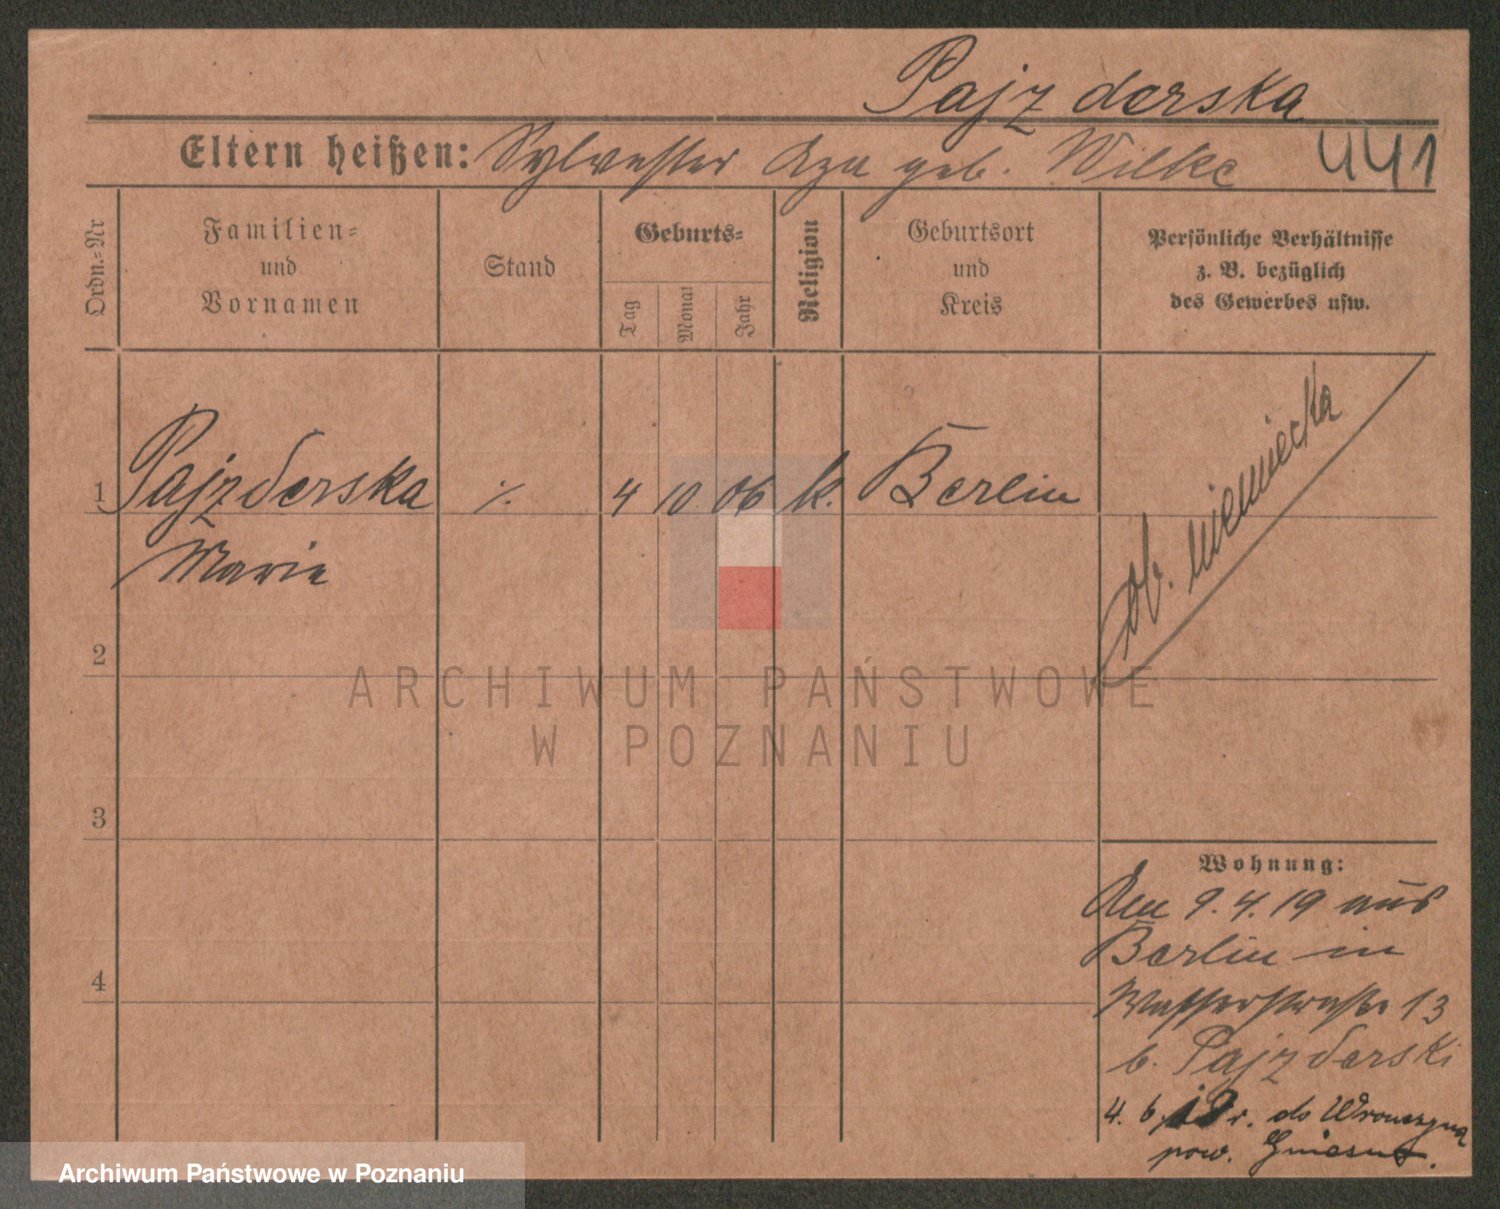 Pajzderska
Eltern heißen: Sylvester geb. Wilke 441
Ordn.-Nr
Familien-
und
Vornamen
Stand
Geburts-
Tag
Monat
Jahr
Religion
Geburtsort
und
Kreis
Persönliche Verhältnisse
z. B. bezüglich
des Gewerbes usw.
1 Pajzderska ·/. 4 10 06 k. Berlin
Marie
ob. niemiecka
2
3
4
ARCHIWUM PAŃSTWOWE
W POZNANIU
Wohnung:
Am 9.4.19 aus
Berlin in
Wasserstraße 13
b. Pajzderski
4. 6. 19 r. do
pow. Gniezno.
Archiwum Państwowe w Poznaniu